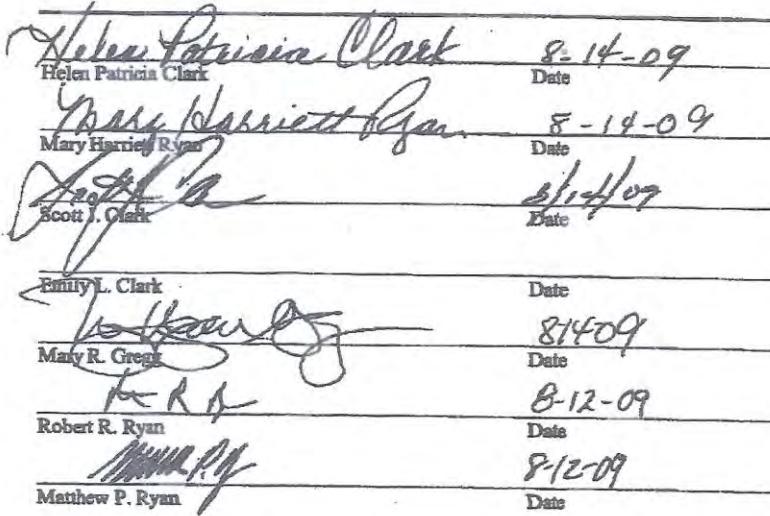 Helen Patricia Clark 8-14-09
Helen Patricia Clark Date
Mary Harriett Ryan 8-14-09
Mary Harriett Ryan Date
8/14/09
Scott J. Clark Date
Emily L. Clark Date
81409
Mary R. Gregg Date
8-12-09
Robert R. Ryan Date
8-12-09
Matthew P. Ryan Date